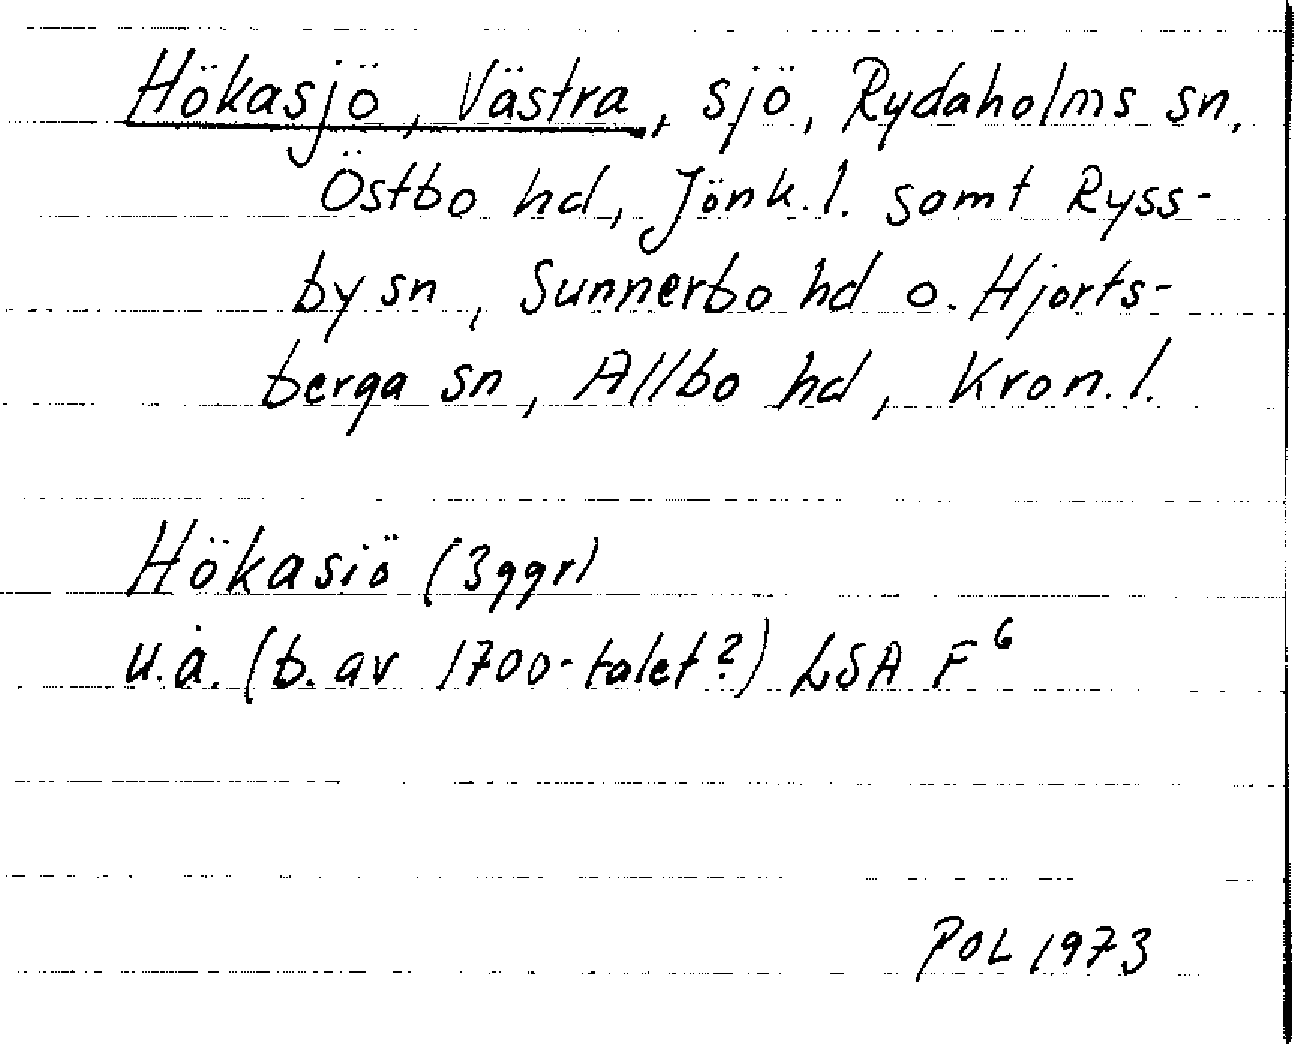 Hökasjö, Västra, sjö, Rydaholms sn,
Östbo hd, Jönk.l. samt Ryss-
by sn, Sunnerbo hd o. Hjorts-
berga sn, Allbo hd, Kron.l.
Hökasiö (3ggr)
u.å. (b. av 1700-talet?) LSA F⁶
POL 1973